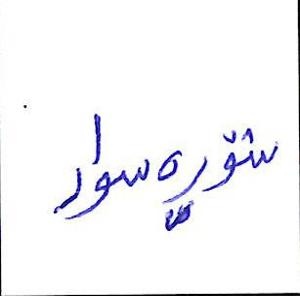 شۆڕەسوار